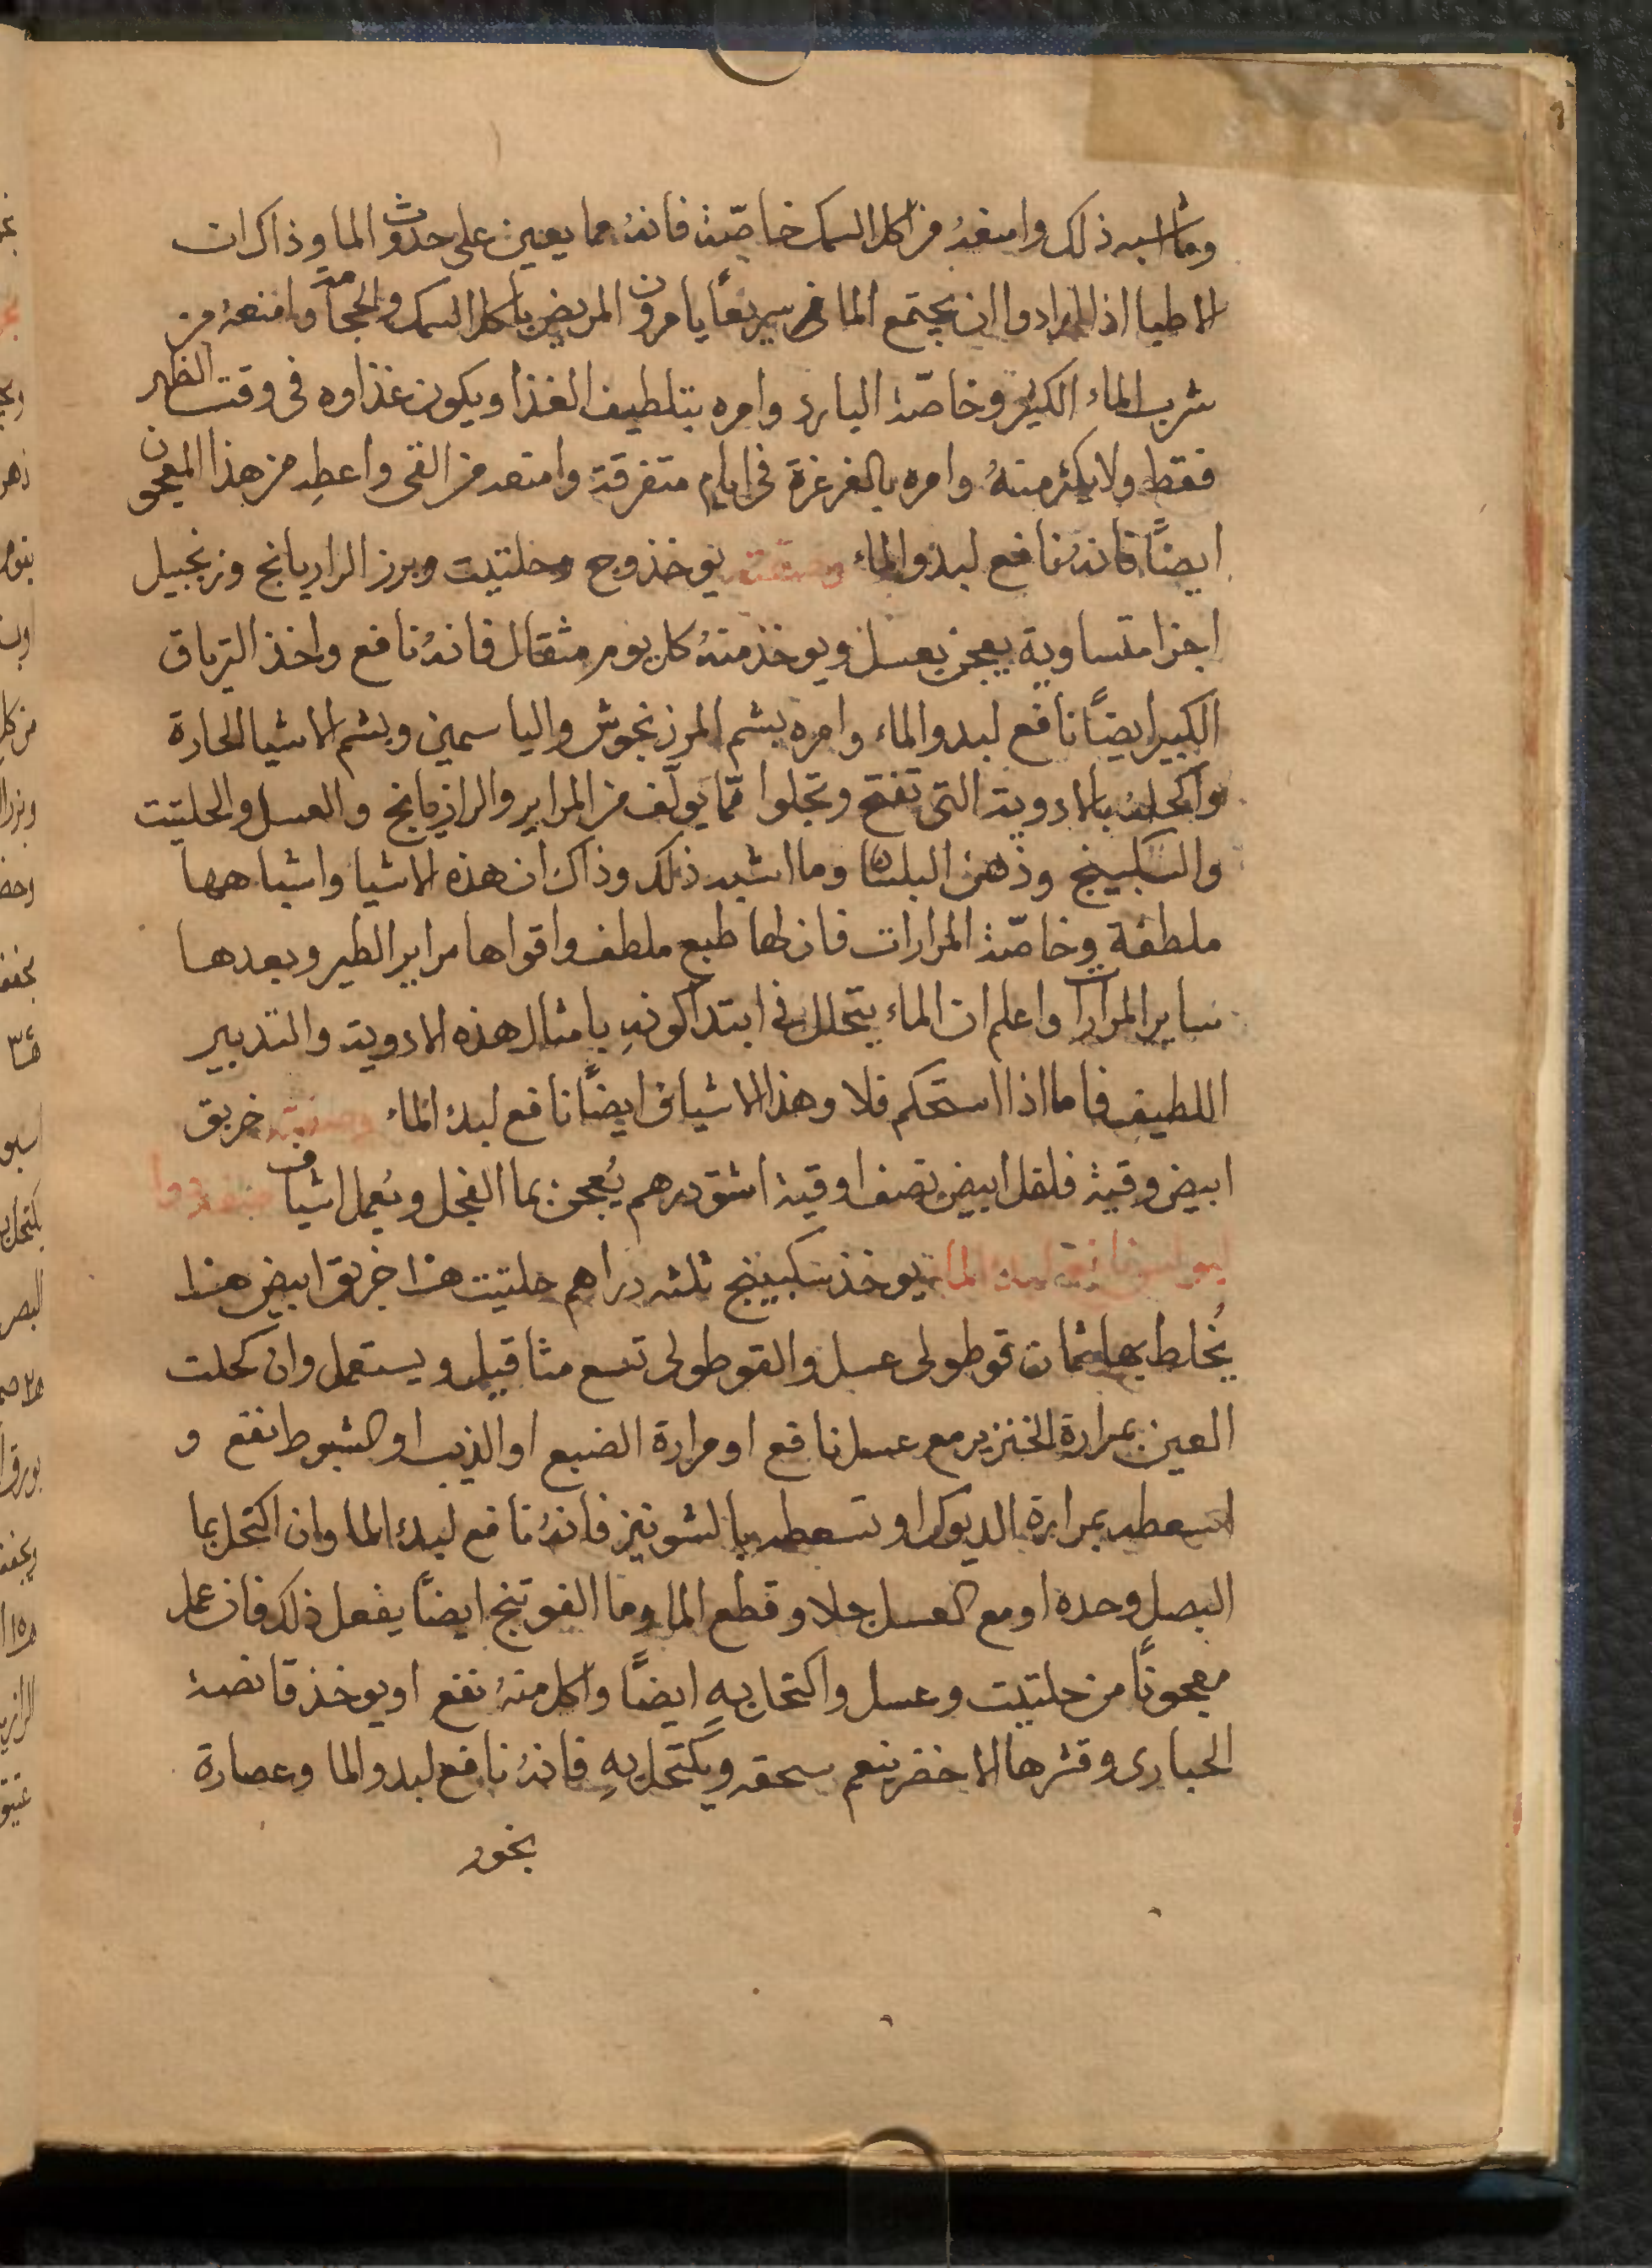 وما اشبه ذلك وامنعهُ من اكل السمك خاصّة فانهُ مما يعين على حدوث الما وذاك ان
الاطبا اذا ارادوا ان يجتمع الما سريعًا يامرون المريض ياكل السمك والحجامة وامنعهُ من
شرب الماء الكثير وخاصّة البارد وامره بتلطيف الغذا ويكون غذاوه فى وقت الظهر
فقط ولا يكثر منهُ وامره بالغرغرة فى ايام متفرقة وامنعه من القى واعطِه من هذا المعجون
ايضًا فانهُ نافع لبدو الماء وصفته يوخذ وج وحلتيت وبرز الرازيانج وزنجبيل
اجزا متساوية يعجن بعسل ويوخذ منهُ كل يوم مثقال فانهُ نافع واخذ الترياق
الكبير ايضًا نافع لبدو الماء وامره بشم المرزنجوش والياسمين وبشم الاشيا الحارة
واكحلهُ بالادوية التى تفتح وتجلوا ممّا يولّف من المراير والرازيانج والعسل والحلتيت
والسكبينج ودهن البلسان وما اشبه ذلك وذاك ان هذه الاشيا واشباهها
ملطفة وخاصّة المرارات فان لها طبع ملطف واقواها مراير الطير وبعدها
ساير المرارات واعلم ان الماء يتحلل فى ابتدا كونهِ بامثال هذه الادوية والتدبير
اللطيف فاما اذا استحكم فلا وهذا الاشياف ايضًا نافع لبدء الماء وصفته خربق
ابيض وقية فلفل ابيض نصف اوقية اشق درهم يُعجن بما الفجل ويُعمل اشياف صفة دوا
لبولس نافع لبدو الما يوخذ سكبينج ثلثه دراهم حلتيت خربق ابيض
يُخلط بها ثمان قوطولى عسل والقوطولى تسع مثاقيل ويستعمل وان كحلت
العين بمرارة الخنزير مع عسل نافع او مرارة الضبع او الذيب او الشبوط نفع و
اسعطه بمرارة الديوك او تسعطه بالشونيز فانهُ نافع لبدء الما وان اكتحل بما
البصل وحده او مع العسل جلا وقطع الما وما الفوتنج ايضًا يفعل ذلك فان عمل
معجونًا من حلتيت وعسل واكتحل بهِ ايضًا واكل منهُ نفع او يوخذ قانصة
الحبارى وقشرها الاخضر ينعم سحقه ويكتحل بهِ فانهُ نافع لبدو الما وعصارة
بخور